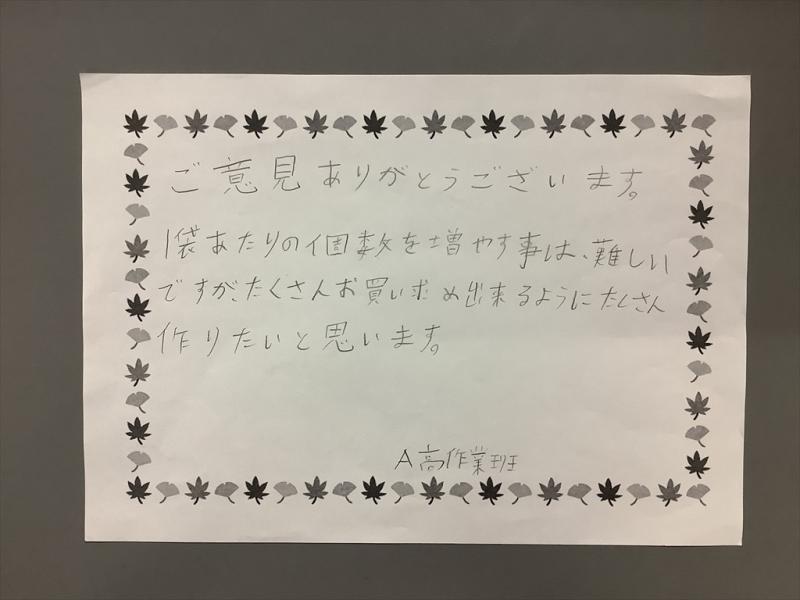 ご意見ありがとうございます。
1袋あたりの個数を増やす事は、難しい
ですが、たくさんお買い求め出来るようにたくさん
作りたいと思います。
A高作業班